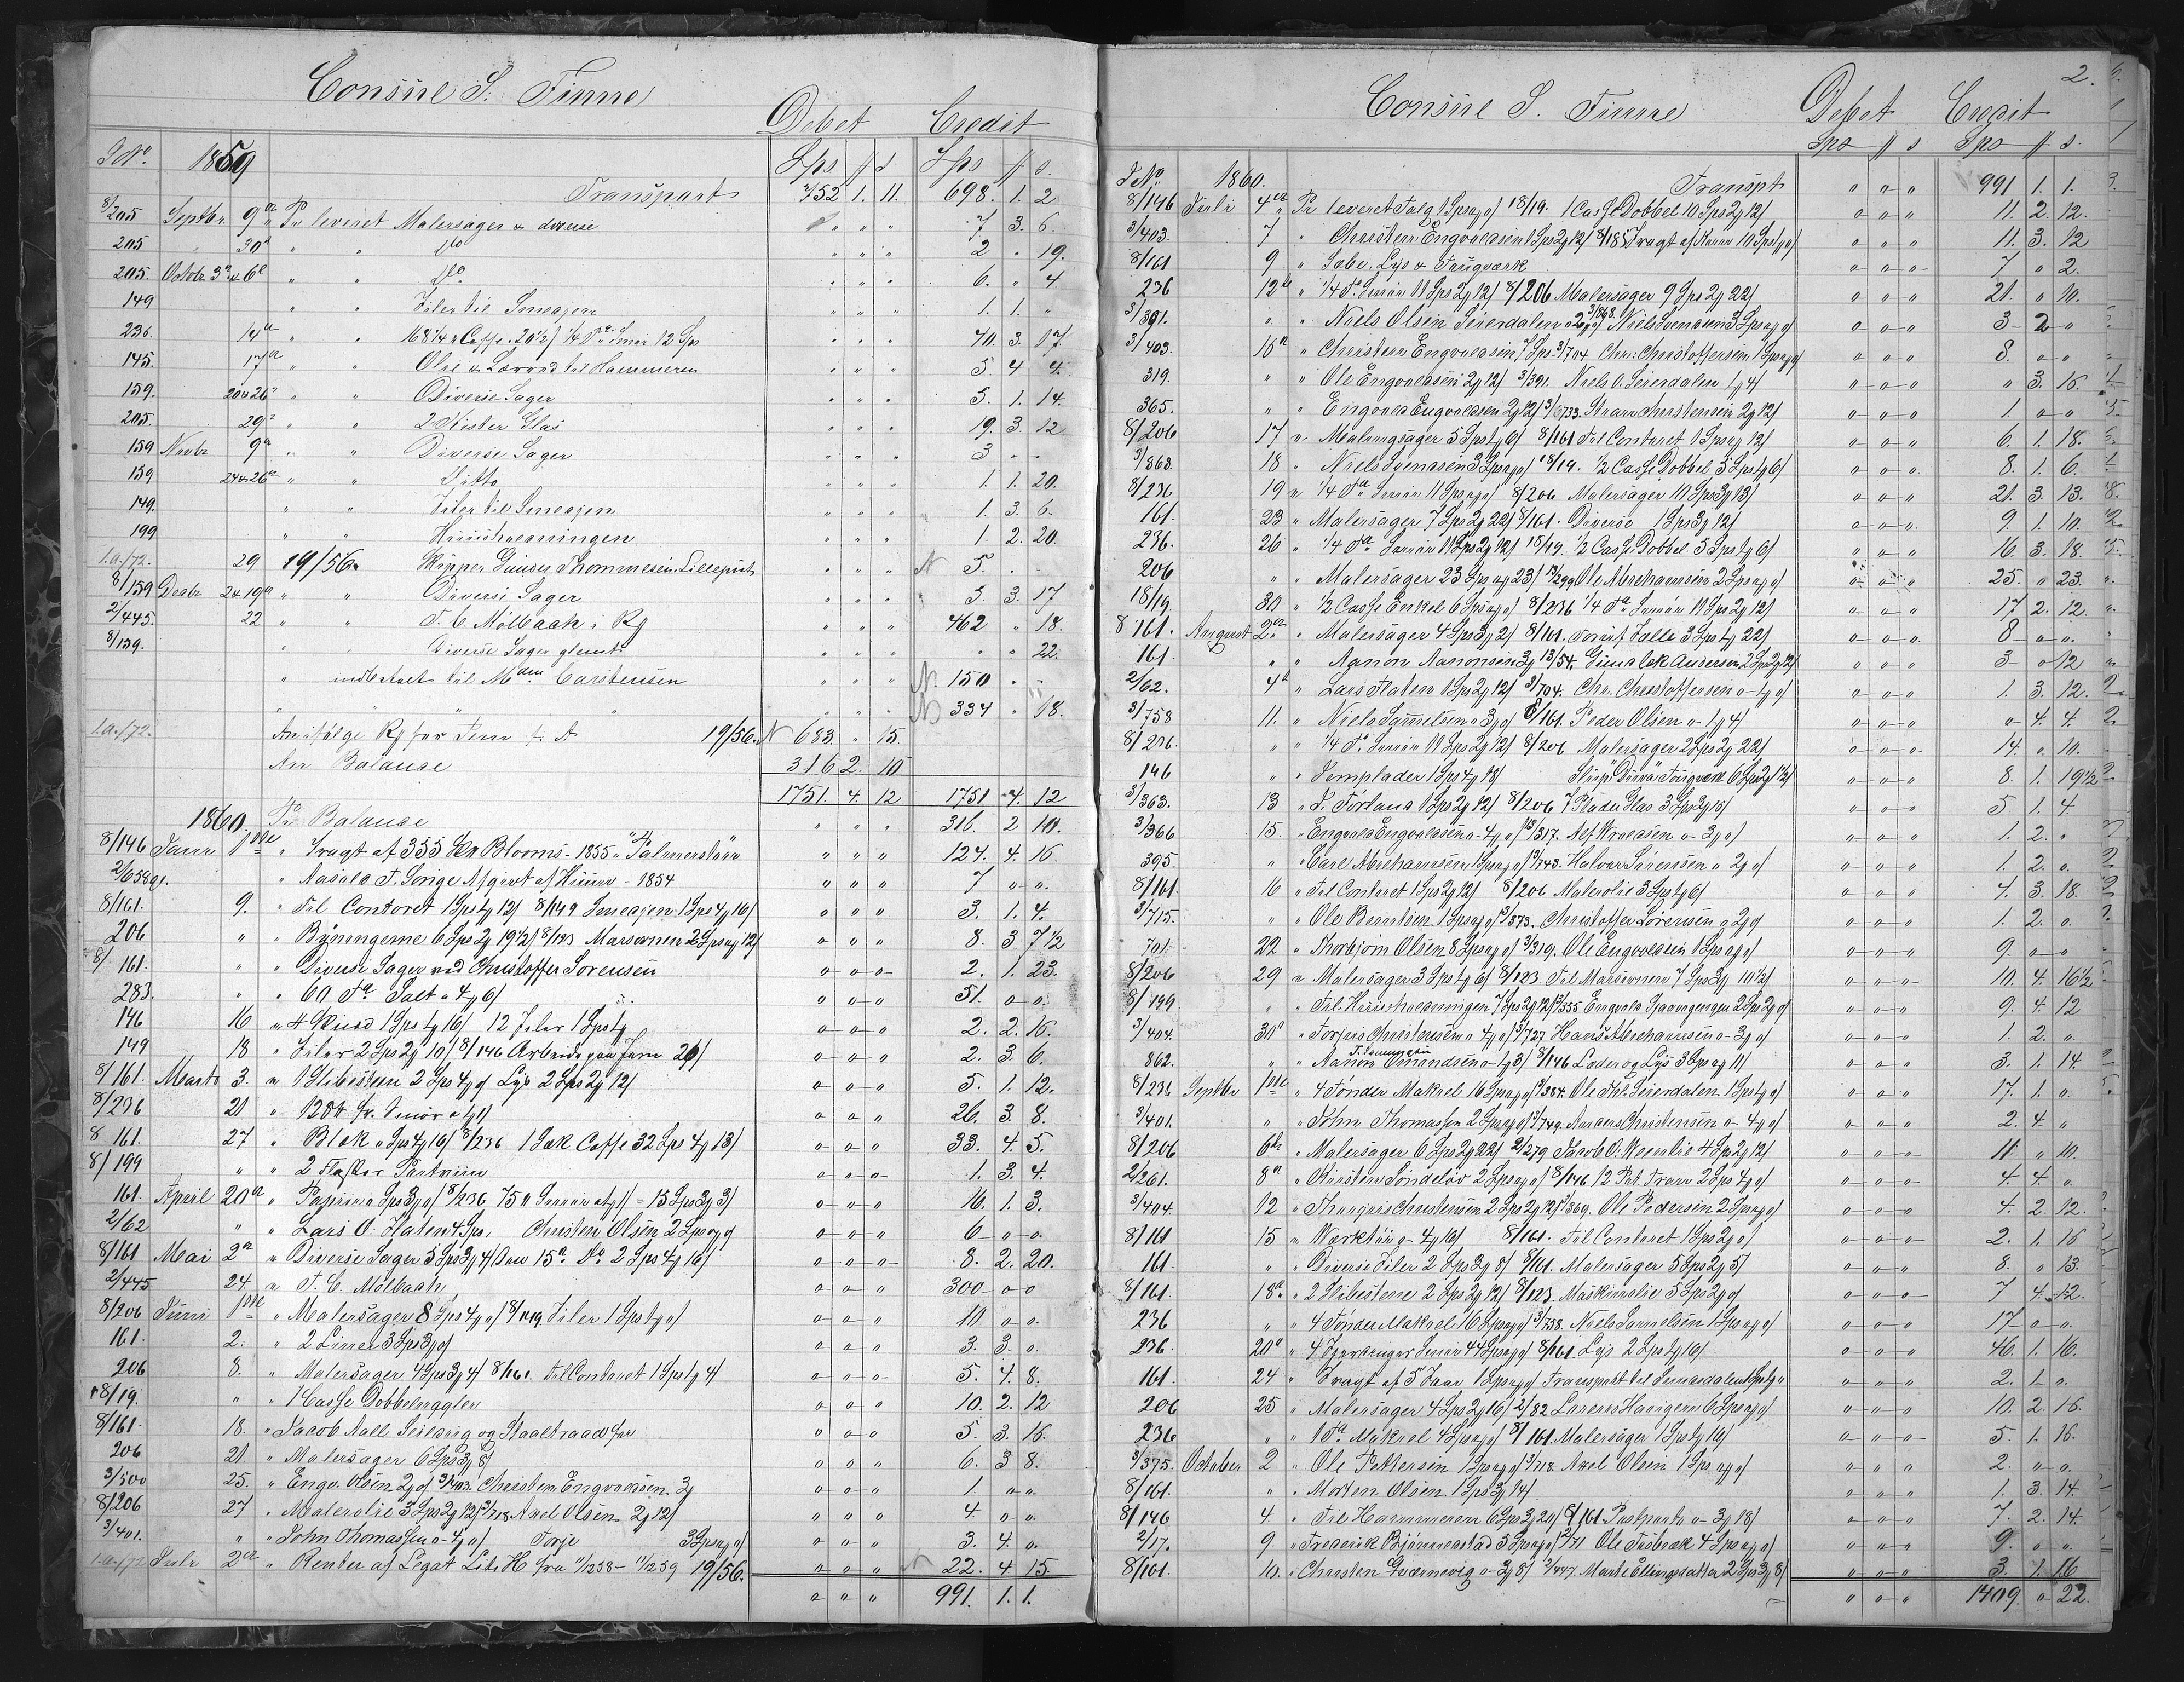 Consul S. Finne
Debet Credit
J No. 1859 Sps # s Sps # s.
Transport 752 1. 11. 698. 1. 2
8/205 Septbr. 9de Pr leveret Malersager & diverse " " " 7 3. 6.
205 " 30te " " do " " " 2 " 19.
205. Octobr. 3de & 6te " " do " " " 6. " 4
149 " " Filer til Smedjen " " " 1. 1. "
236. 14de " " Caffe 1/4 Td Smør 12 Sps " " " 40. 3. 17.
145. 17de " " Olie & til Hammeren " " " 5. 4 4.
159. 20 & 26 " " Diverse Sager " " " 5. 1. 14.
205. 29 " " 2 Kister Glas " " " 19. 3. 12
159 Novbr 9de " " Diverse Sager " " " 3 " "
159 24 & 26de " " Ditto " " " 1. 1. 20.
149. " " Filer til Smedjen " " " 1. 3. 6.
199 " " Huusholdningen " " " 1. 2. 20.
1.a./72. 29 19/56. Skipper Gunder Thommesen Lilleput " " " N 5. " "
8/159 Decbr 2 & 19de " " Diverse Sager " " " 3 3. 17
2/445. 22 " " T. C. Mølbach i Rg " " " 462 " 18.
8/159. " " Diverse Sager glemt " " " " " 22.
" indbetalt til Mdm Carstensen " " " N 150 " "
" " " " " " N 334 " 18.
1.a./72. An ifølge Rg 19/56. N 683. " 15.
An Balance 316 2. 10
1751. 4. 12 1751 4. 12
1860. Pr Balance " " " 316. 2 10.
8/146 Janr 1ste " Fragt af 355 Blooms - 1855 " Palmerston " " " 124. 4. 16.
2/658 " Aasild T. Afgivt af - 1854 " " " 7 " "
8/161. 9. " Til Contoret 1 Sps 1# 12/ 8/149 Smedjen 1 Sps 4# 16/ " " " 3. 1. 4.
206 " " Bygningerne 6 Sps 2# 19½/ 8/123 Marsovnen 2 Sps "# 12/ " " " 8. 3. 7½
8/161. " " Diverse Sager ved Christoffer Sørensen " " " 2. 1. 23.
283. " " 60 Td Salt a 4# 6/ " " " 51. " "
146 16 " 4 Skind 1 Sps 1# 16/ 12 Filer 1 Sps 1# " " " 2. 2. 16.
149 18 " Filer 2 Sps 2# 10/ 8/146 Arbeide paa Jern 20/ " " " 2. 3. 6.
8/161. Marts 3. " 1 Slibesteen 2 Sps 4# "/ Lys 2 Sps 2# 12/ " " " 5. 1. 12.
8/236 21 " 128 # Smør a 1# 1/ " " " 26. 3 8.
8 161. 27 " Blæk " Sps 4# 16/ 8/236 1 Sæk Caffe 32 Sps 4# 13/ " " " 33. 4. 5.
8/199 " " 2 Flasker Portviin " " " 1. 3. 4.
161. April 20de " Papiir " Sps 3# "/ 8/236 75 # Smør a 1# 1/ = 15 Sps 3# 3/ " " " 16. 1. 3.
2/62 " " Lars O. 4 Sps, Christen Olsen 2 Sps "# " " " 6 " "
8/161 Mai 2de " Diverse Sager 5 Sps 3# 4/ Den 15de Do 2 Sps 4# 16/ " " " 8. 2. 20.
2/445 24 " T. C. Mølbach " " " 300 " "
8/206 Juni 1ste " Malersager 8 Sps 4# "/ 8/149 Filer 1 Sps 1# "/ " " " 10. " "
161. 2. " 2 Liner 3 Sps 3# " " " " 3. 3. "
206 8. " Malersager 4 Sps 3# 4/ 8/161 Til Contoret 1 Sps 1# 4/ " " " 5. 4. 8.
18/19. " " 1 Casse Dobbelnagler " " " 10. 2. 12
8/161. 18. " Jacob Aall Seildug og Staaltraad " " " 5. 3. 16.
206 21 " Malersager 6 Sps 3# 8/ " " " 6. 3 8.
3/500 25. " Engv. Olsen 2# "/ 3/403 Christen Engvoldsen 3# " " " 1. " "
8/206 27 " Malerolie 3 Sps 2# 12/ 3/718 Axel Olsen 2# 12/ " " " 4. " "
3/401. " " John Thomassen " 4# "/ Torje 3 Sps "# "/ " " " 3. 4. "
1.a./72 Juli 2de " Renter af Legat Litr. H fra 11/12 58 - 11/12 59 19/56. " " " N 22. 4 15.
" " " 991. 1. 1.
2.
Consul S. Finne
Debet Credit
Sps # s Sps # s.
J No. 1860. Transpt " " " 991 1. 1.
8/146 Juli 4de " Pr leveret Talg 1 Sps "# "/ 18/19. 1 Casse Dobbel 10 Sps 2# 12/ " " " 11. 2. 12.
3/403. 7 " Christen Engvoldsen 1 Sps 2# 12/ Fragt af 10 Sps 1# "/ " " " 11. 3. 12
8/161 9 " Sæbe, Lys & Tougværk " " " 7 " 2.
236 12te " 1/4 Td Smør 11 Sps 2# 12/ 8/206 Malersager 9 Sps 2# 22/ " " " 21. " 10.
3/391. " " Niels Olsen Seierdalen " 2# "/ 3/868. Niels Svendsen 3 Sps "# "/ " " " 3 2 "
3/403. 16de " Christen Engvoldsen 7 Sps 3/704 Chr. Christoffersen 1 Sps "# "/ " " " 8. " "
319. " " Ole Engvoldsen 2# 12/ 3/391. Niels O. Seierdalen 1# 4/ " " " " 3. 16.
365. " " Engvold Engvoldsen 2# 12/ 3/733. Christensen 2# 12/ " " " 1 " "
8/206 17 " Malingsager 5 Sps 1# 6/ 8/161 Til Contoret 1 Sps "# 12/ " " " 6. 1. 18.
3/868. 18 " Niels Svendsen 3 Sps "# "/ 18/19. ½ Casse Dobbel 5 Sps 1# 6/ " " " 8. 1 6.
8/236 19 " 1/4 Td Smør 11 Sps "# "/ 8/206 Malersager 10 Sps 3# 13/ " " " 21. 3. 13.
161. 23 " Malersager 7 Sps 2# 22/ 8/161. Diverse 1 Sps 3# 12/ " " " 9. 1. 10.
236. 26 " 1/4 Td Smør 11 Sps 2# 12/ 18/19. ½ Casse Dobbel 5 Sps 1# 6/ " " " 16. 3. 18.
206 " " Malersager 23 Sps "# 23/ Ole Abrehamsen 2 Sps "# "/ " " " 25. " 23.
18/19. 30 " ½ Casse Enkel 6 Sps "# "/ 8/236 1/4 Td Smør 11 Sps 2# 12/ " " " 17 2. 12.
8 161. August 2de " Malersager 4 Sps 3# 2/ 8/161. 3 Sps 1# 22/ " " " 8 " "
161 " " Aanon Aanonsen 3# 13/54. Andersen 2 Sps 2# 12/ " " " 3 " 12
2/62. 4de " Lars 1 Sps 2# 12/ 3/704. Chr. Christoffersen " 1# "/ " " " 1. 3. 12.
3/758 11. " Niels Samuelsen " 3# "/ 8/161. Peder Olsen " 1# 4/ " " " " 4. 4.
8/236. " " 1/4 Td Smør 11 Sps 2# 12/ 8/206 Malersager 2 Sps 2# 22/ " " " 14. " 10.
146 " " 1 Sps 4# 18/ Slup Tougværk 6 Sps 2# 1½/ " " " 8. 1. 19½
3/363. 13 " 1 Sps 2# 12/ 8/206 7 Plader Glas 3 Sps 3# 16/ " " " 5 1. 4.
3/366 15. " Engvold Engvoldsen " 4# "/ " 3# "/ " " " 1. 2. "
395. " " Carl Abrehamsen 1 Sps "# "/ 3/743. Halvor Sørensen " 2# "/ " " " 1. 2. "
8/161 16 " Til Contoret 1 Sps 2# 12/ 8/206 Malerolie 3 Sps 1# 6/ " " " 4. 3. 18.
3/715. " " Ole Berntsen 1 Sps "# "/ 3/373. Christoffer Sørensen " 2# " " " " 1. 2. "
701. 22 " Thorbjørn Olsen 8 Sps "# "/ 3/319. Ole Engvoldsen 1 Sps "# "/ " " " 9. " "
8/206 29 " Malersager 3 Sps 1# 6/ 8/123. Til Marsovnen 7 Sps 3# 10½/ " " " 10. 4. 16½
8/199. " " Til Huusholdningen 7 Sps 2# 12/ 3/355 Engvold 2 Sps 2# "/ " " " 9. 4. 12
3/404. 30te " Torjus Christensen " 4# "/ 3/727 Hans Abrehamsen " 3# "/ " " " 1. 2. "
862. " " Aanon Omundsen " 1# 3/ 8/146 Læder og Lys 3 Sps "# 11/ " " " 3. 1. 14.
8/236 Septbr 1ste " 4 Tønder Makrel 16 Sps "# "/ 3/384. Ole Seierdalen 1 Sps 1# "/ " " " 17. 1. "
3/401. " " John Thomassen 2 Sps "# "/ 3/749. Anders Christensen " 4# "/ " " " 2. 4. "
8/206 6te " Malersager 6 Sps 2# 22/ 2/279 Jacob O. 4 Sps 2# 12/ " " " 11. " 10.
2/261. 8de " Christen Søndeløv 2 Sps "# "/ 8/146 12 Pot. Tran 2 Sps 4# "/ " " " 4 4. "
3/404. 12 " Thorjus Christensen 2 Sps 2# 12/ Ole Pedersen 2 Sps "# "/ " " " 4. 2. 12.
8/161 15 " Værktøi " 4# 16/ 8/161. Til Contoret 1 Sps 2# "/ " " " 2. 1. 16
161. " " Diverse Filer 2 Sps 3# 8/ 8/161. Malersager 5 Sps 2# 5/ " " " 8. " 13.
8/161. 18de " 2 Slibestene 2 Sps 2# 12/ 8/123. Maskinolie 5 Sps 2# " " " " 7 4. 12.
236 " " 4 Tønder Makrel 16 Sps "# "/ 3/758. Niels Samuelsen 1 Sps "# "/ " " " 17 " "
236. 20de " 4 Smør 44 Sps "# "/ 8/161. Lys 2 Sps 1# 16/ " " " 46. 1. 16.
161. 24 " Fragt af 5 1 Sps "# "/ Transport til 1 Sps 1# " " " " 2. 1. "
206 25 " Malersager 4 Sps 2# 16/ 2/82 6 Sps "# "/ " " " 10. 2. 16.
236 " " 1 Td Makrel 4 Sps "# "/ 8/161. Malersager 1 Sps 1# 16/ " " " 5. 1. 16.
3/375. October 2 " Ole Pettersen 1 Sps "# "/ 3/718. Axel Olsen 1 Sps "# "/ " " " 2. " "
8/161. " " Morten Olsen 1 Sps 3# 14/ " " " 1. 3. 14.
8/146 4. " Til Hammeren 6 Sps 3# 20/ 8/161. Postporto " 3# 18/ " " " 7. 2. 14.
2/17. 9 " Frederik Bjønnestad 5 Sps "# "/ Ole 4 Sps "# "/ " " " 9. " "
8/161. 10. " Christen " 3# 8/ 2/447. Marte Ellingsdatter 2 Sps 3# 8/ " " " 3. 1. 16
" " " 1409. " 22.